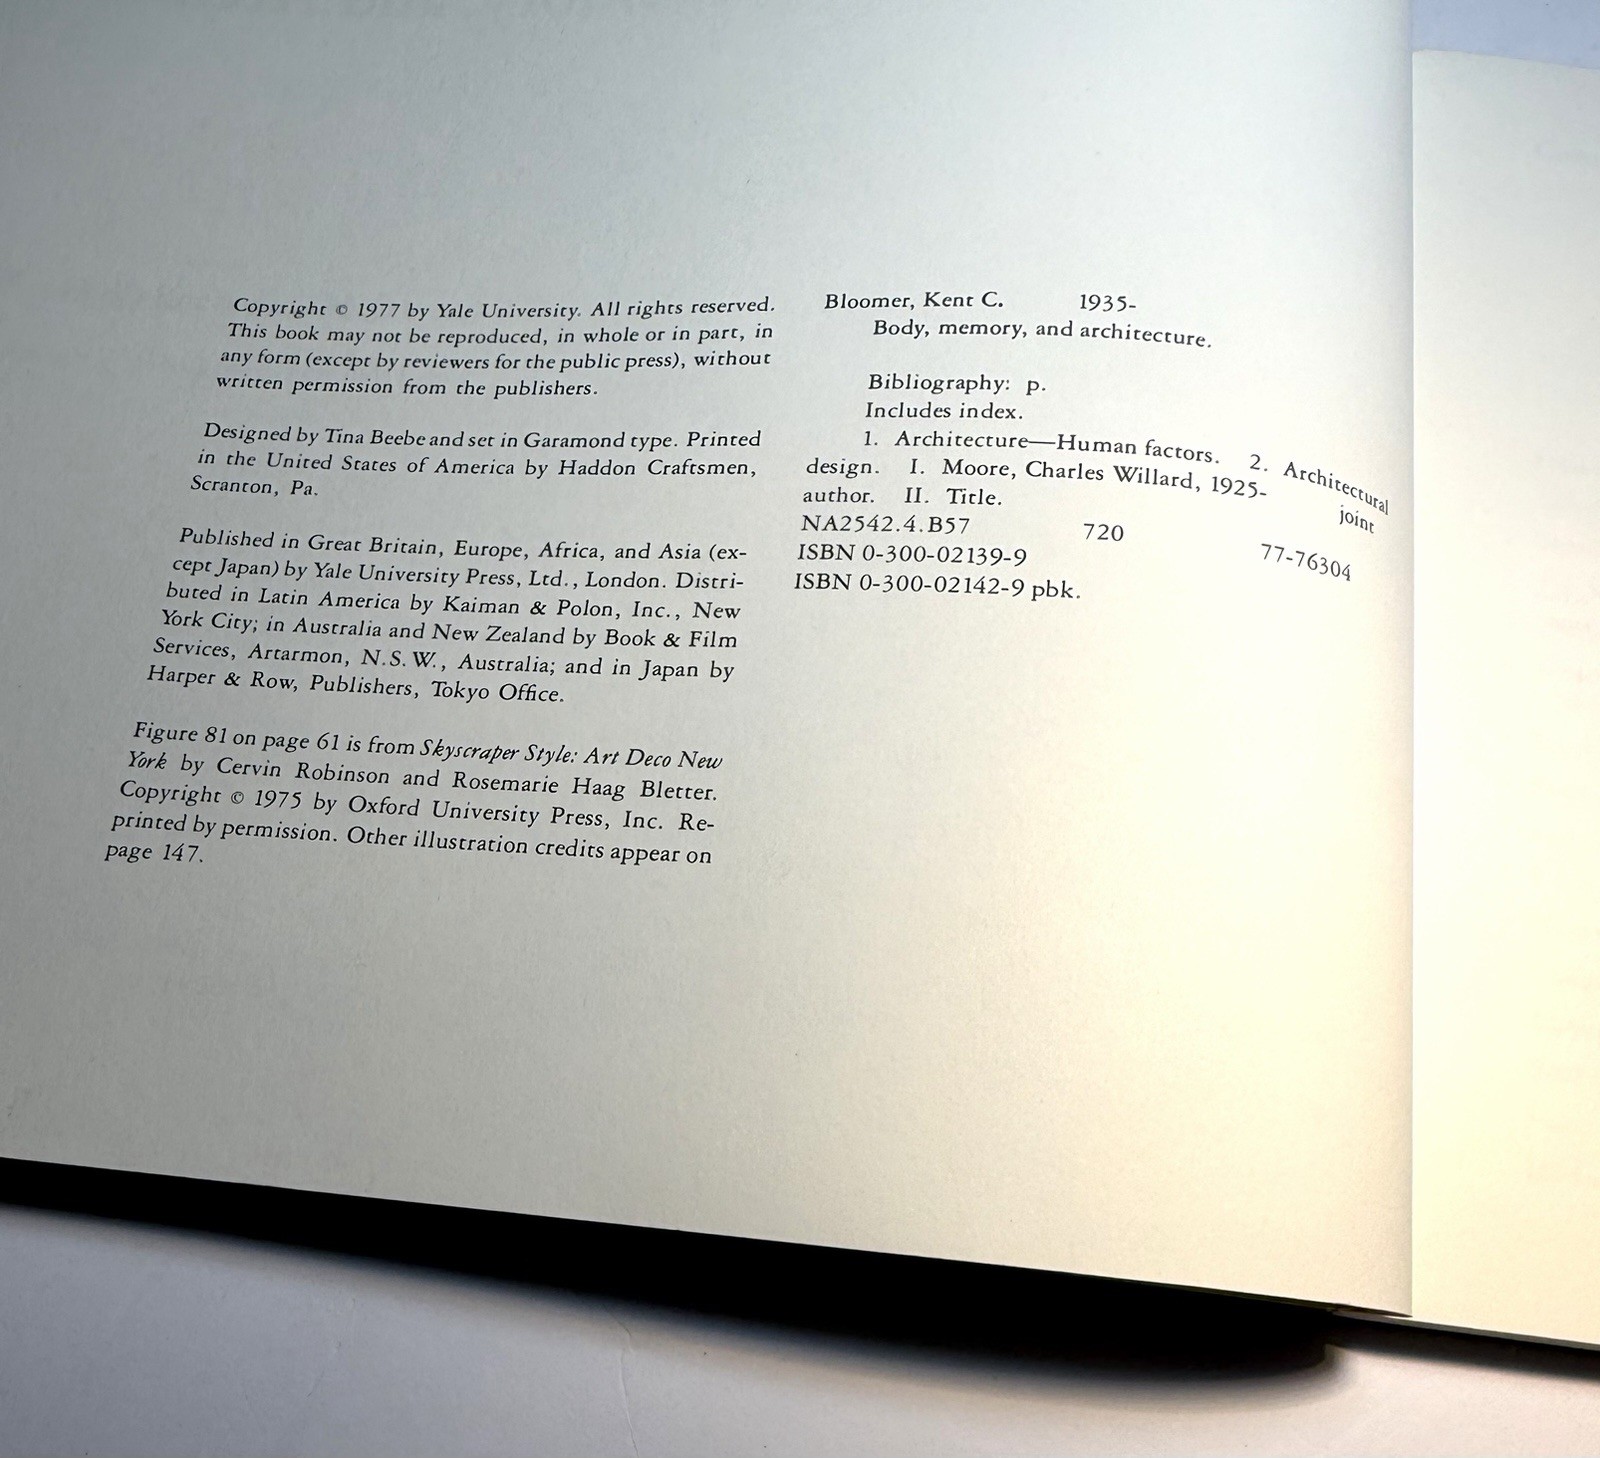 Copyright © 1977 by Yale University. All rights reserved.
This book may not be reproduced, in whole or in part, in
any form (except by reviewers for the public press), without
written permission from the publishers.
Designed by Tina Beebe and set in Garamond type. Printed
in the United States of America by Haddon Craftsmen,
Scranton, Pa.
Published in Great Britain, Europe, Africa, and Asia (ex-
cept Japan) by Yale University Press, Ltd., London. Distri-
buted in Latin America by Kaiman & Polon, Inc., New
York City; in Australia and New Zealand by Book & Film
Services, Artarmon, N.S.W., Australia; and in Japan by
Harper & Row, Publishers, Tokyo Office.
Figure 81 on page 61 is from Skyscraper Style: Art Deco New
York by Cervin Robinson and Rosemarie Haag Bletter.
Copyright © 1975 by Oxford University Press, Inc. Re-
printed by permission. Other illustration credits appear on
page 147.
Bloomer, Kent C. 1935-
Body, memory, and architecture.
Bibliography: p.
Includes index.
1. Architecture—Human factors. 2. Architectural
design. I. Moore, Charles Willard, 1925- joint
author. II. Title.
NA2542.4.B57 720 77-76304
ISBN 0-300-02139-9
ISBN 0-300-02142-9 pbk.